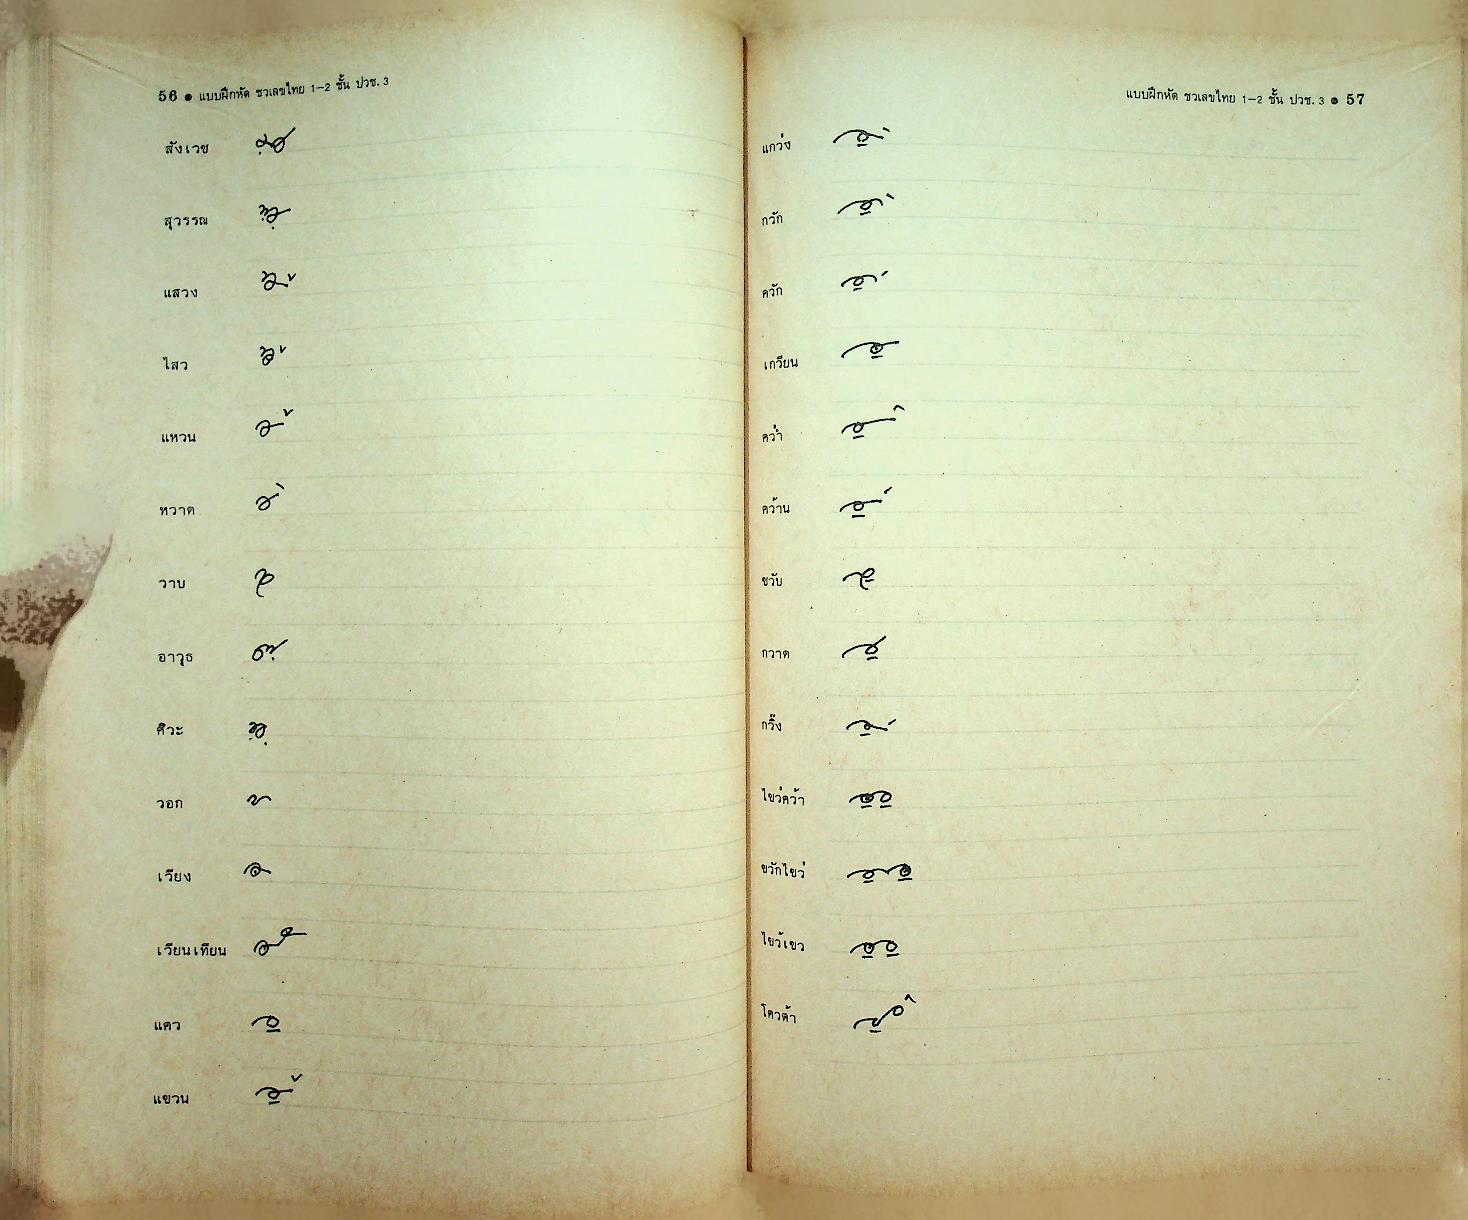 56 ● แบบฝึกหัด ชวเลขไทย 1–2 ชั้น ปวช. 3
สังเวช
สุวรรณ
แสวง
ไสว
แหวน
หวาด
วาบ
อาวุธ
ศิวะ
วอก
เวียง
เวียนเทียน
แคว
แขวน
แบบฝึกหัด ชวเลขไทย 1–2 ชั้น ปวช. 3 ● 57
แกว่ง
กวัก
ควัก
เกวียน
คว่ำ
คว้าน
ขวับ
กวาด
กวิ๊ง
ไขว่คว้า
ขวักไขว่
ไขว้เขว
โควต้า